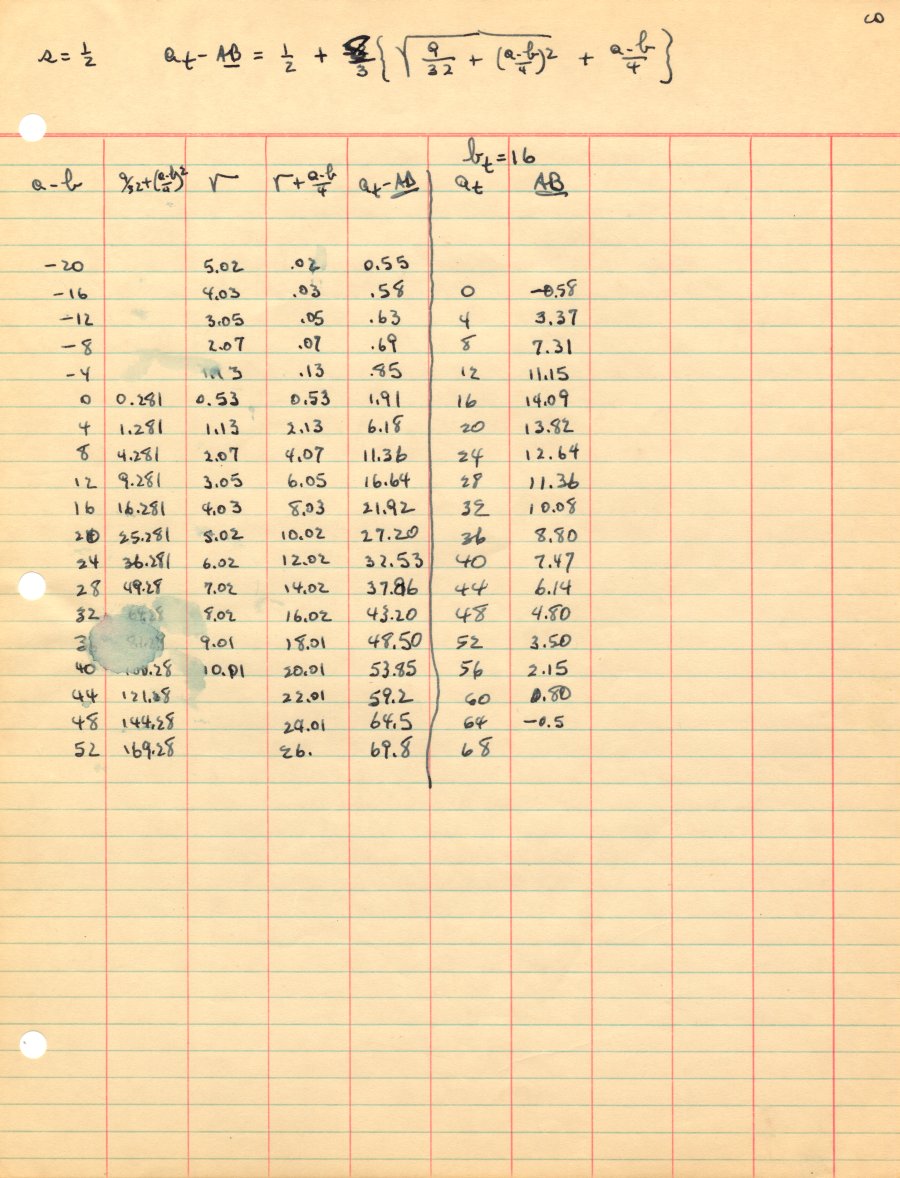 CO
s = 1/2 a_t - AB = 1/2 + /3 { √(9/32 + (a-b/4)²) + a-b/4 }
b_t = 16
a-b 9/32+(a-b/4)² √ √+a-b/4 a_t-AB a_t AB
-20 5.02 .02 0.55
-16 4.03 .03 .58 0 -0.58
-12 3.05 .05 .63 4 3.37
-8 2.07 .07 .69 8 7.31
-4 1.13 .13 .85 12 11.15
0 0.281 0.53 0.53 1.91 16 14.09
4 1.281 1.13 2.13 6.18 20 13.82
8 4.281 2.07 4.07 11.36 24 12.64
12 9.281 3.05 6.05 16.64 28 11.36
16 16.281 4.03 8.03 21.92 32 10.08
20 25.281 5.02 10.02 27.20 36 8.80
24 36.281 6.02 12.02 32.53 40 7.47
28 49.28 7.02 14.02 37.86 44 6.14
32 64.28 8.02 16.02 43.20 48 4.80
9.01 18.01 48.50 52 3.50
40 100.28 10.01 20.01 53.85 56 2.15
44 121.28 22.01 59.2 60 0.80
48 144.28 24.01 64.5 64 -0.5
52 169.28 26. 69.8 68